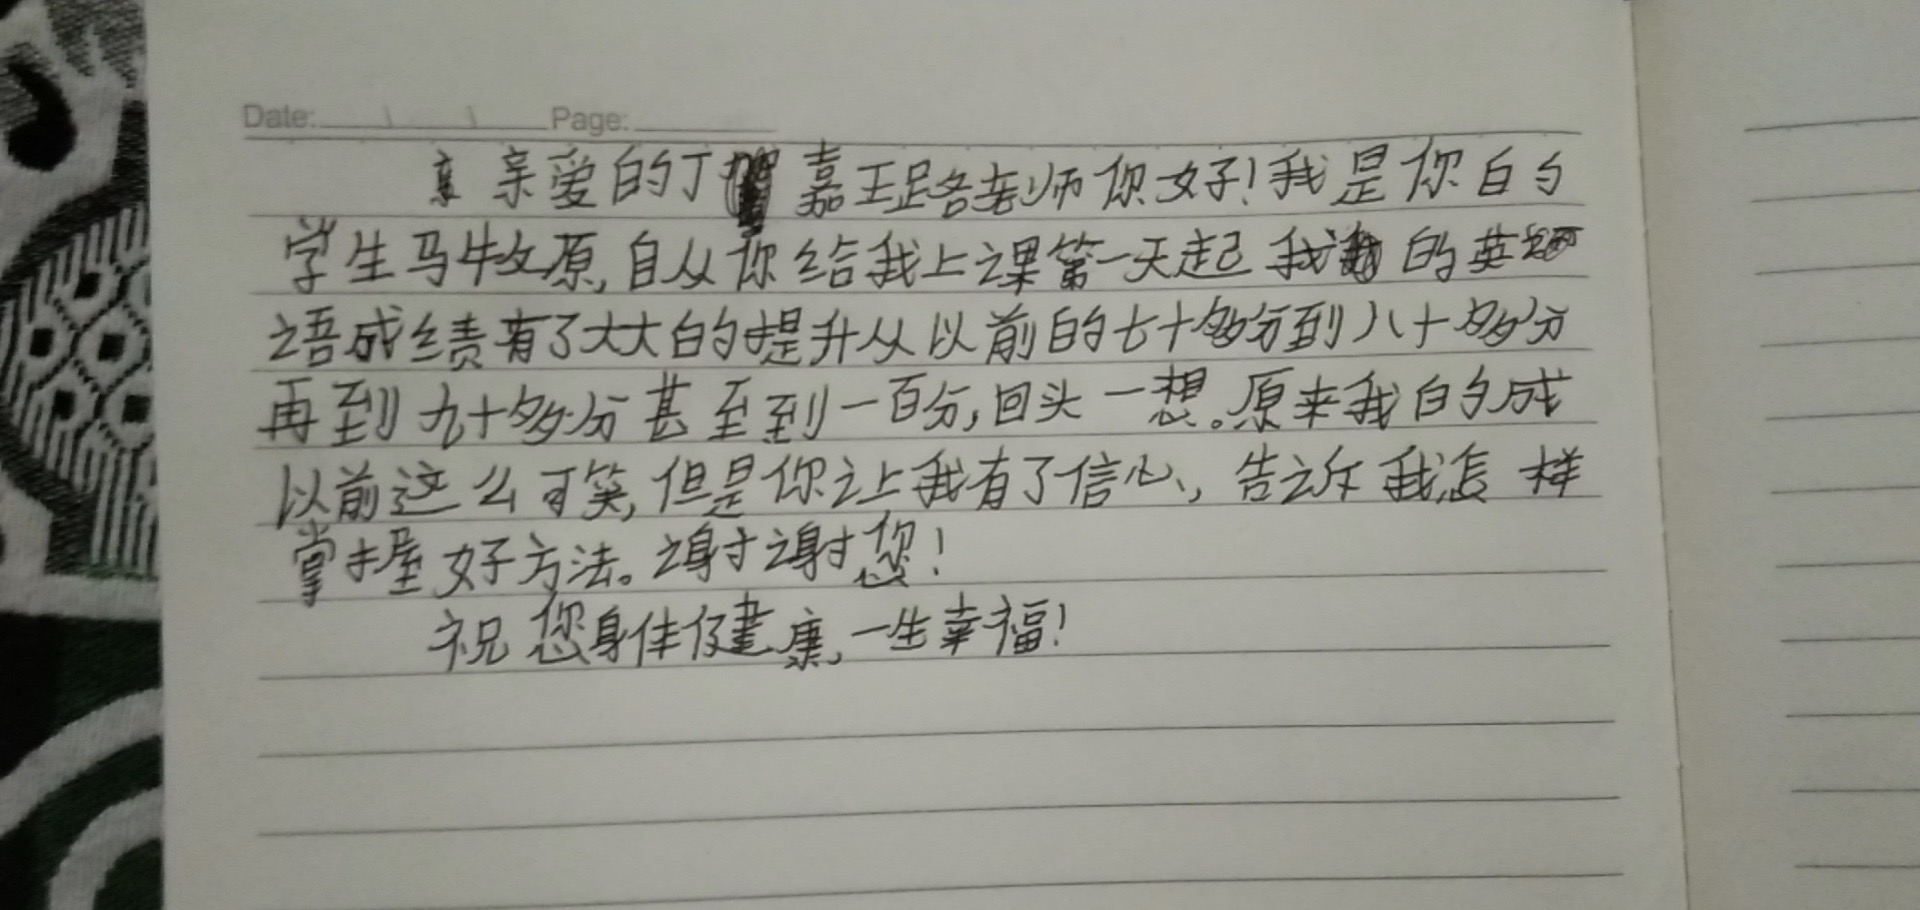 Date: Page:
亲爱的丁嘉璐老师你好!我是你的
学生马牧原,自从你给我上课第一天起我的英
语成绩有了大大的提升从以前的七十多分到八十多分
再到九十多分甚至到一百分,回头一想。原来我的成
以前这么可笑,但是你让我有了信心,告诉我怎样
掌握好方法。谢谢您!
祝您身体健康,一生幸福!